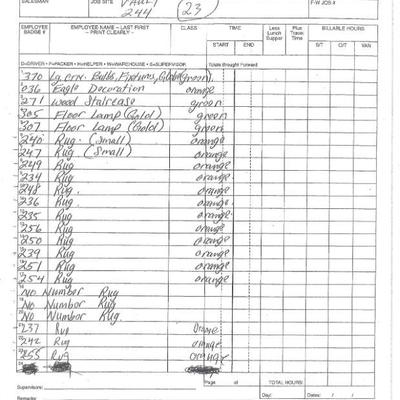 SALESMAN JOB SITE VAULT 244 (23) F-W JOB #
EMPLOYEE BADGE # EMPLOYEE NAME - LAST FIRST - PRINT CLEARLY - CLASS TIME START END Less Lunch Supper Plus Travel Time BILLABLE HOURS S/T O/T V/T
D=DRIVER P=PACKER H=HELPER W=WAREHOUSE S=SUPERVISOR Totals Brought Forward
370 Lg. crtn. Bulbs, Fixtures, Global green
036 Eagle Decoration orange
271 Wood Staircase green
305 Floor Lamp (Gold) green
307 Floor Lamp (Gold) green
240 Rug (Small) orange
247 Rug (Small) orange
249 Rug orange
234 Rug orange
248 Rug orange
236 Rug orange
235 Rug orange
256 Rug orange
250 Rug orange
239 Rug orange
251 Rug orange
254 Rug orange
No Number Rug
No Number Rug
No Number Rug
237 Rug Orange
242 Rug orange
255 Rug orange
Supervisor: Page of TOTAL HOURS:
Remarks: Day: Dates: /